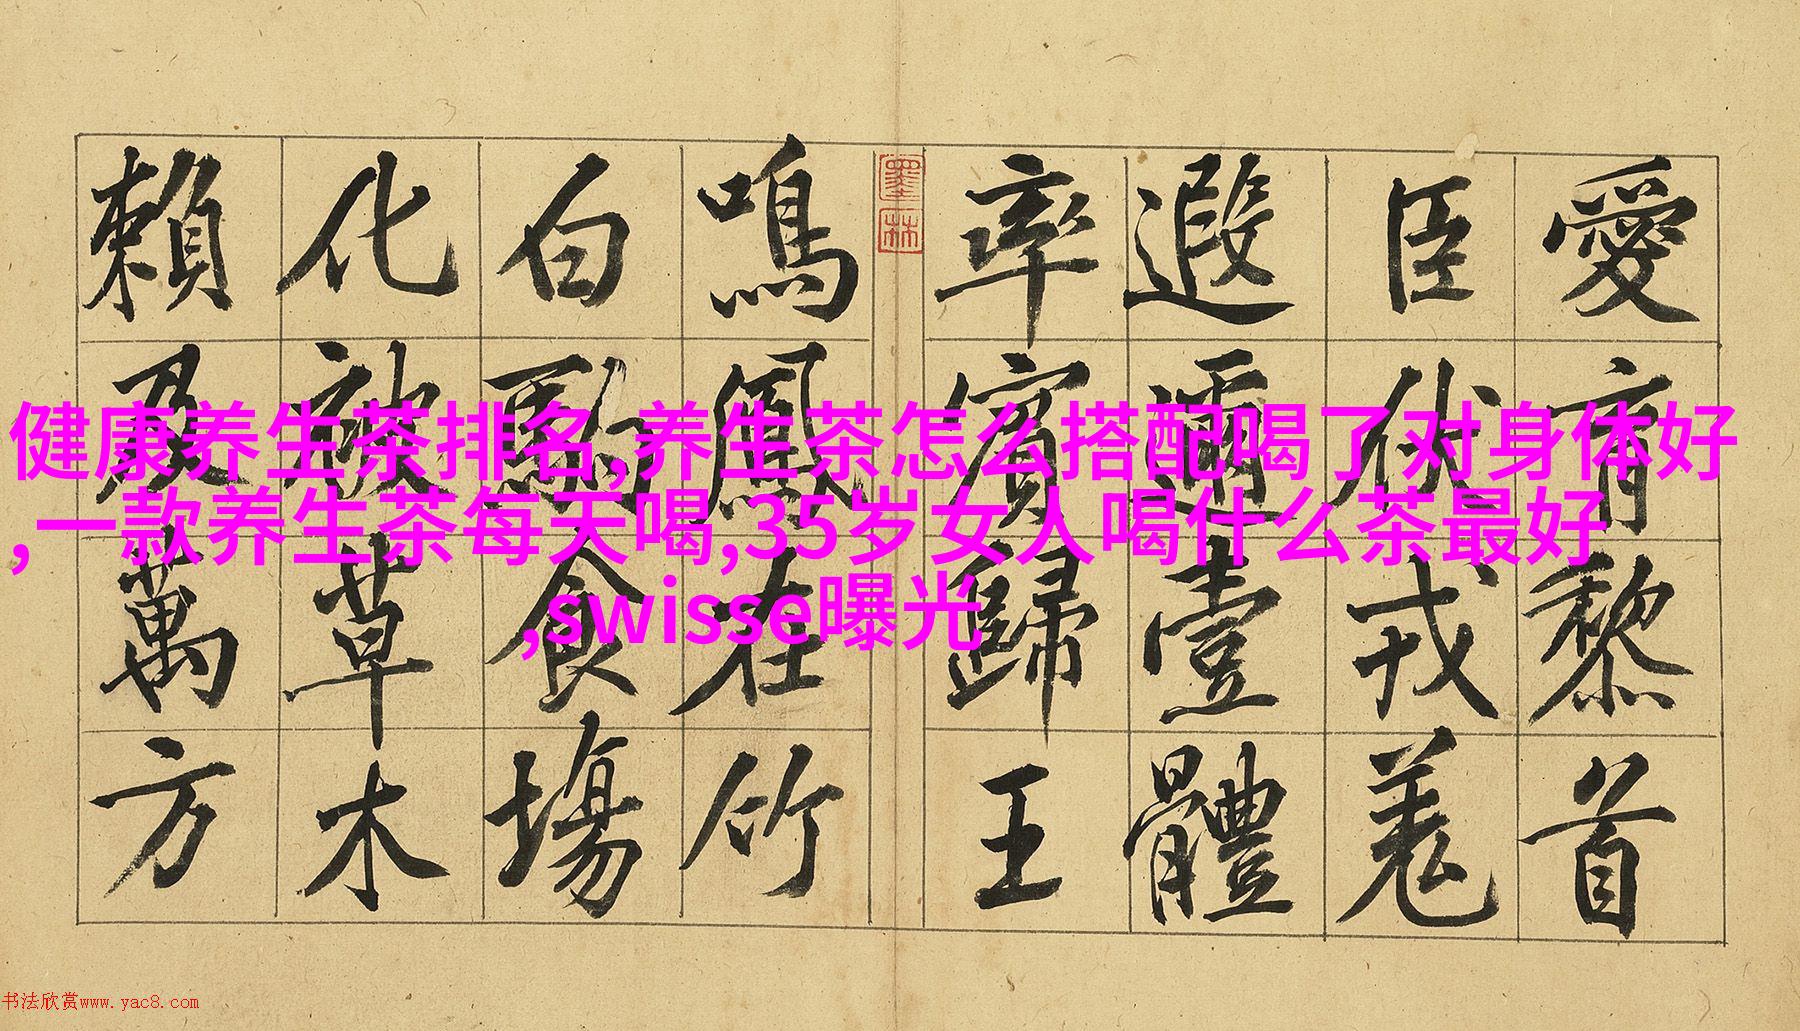 愛育黎首
臣伏戎羌
遐邇壹體
率賓歸王
墨林
鳴鳳在竹
白駒食場
化被草木
賴及萬方
健康养生茶排名,养生茶怎么搭配喝了对身体好
,一款养生茶每天喝,35岁女人喝什么茶最好
,swisse曝光
书法欣赏www.yac8.com